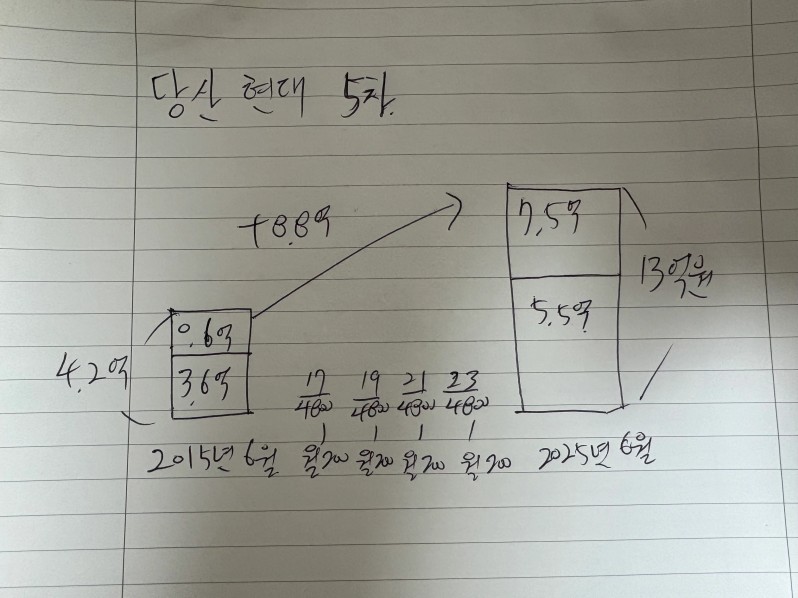 당산 현대 5차.
+8.8억
7.5억
13억원
5.5억
0.6억
4.2억
3.6억
17 19 21 23
4800 4800 4800 4800
2015년 6월 월200 월200 월200 월200 2025년 6월